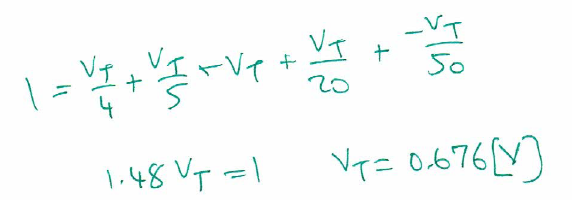 1 = V_T/4 + V_T/5 + V_T + V_T/20 + -V_T/50
1.48 V_T = 1 V_T = 0.676 [V]